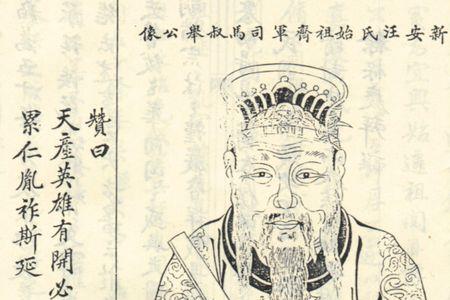 新安汪氏始祖齊軍司馬叔舉公像
贊曰
天產英雄有開必
累仁胤祚斯延